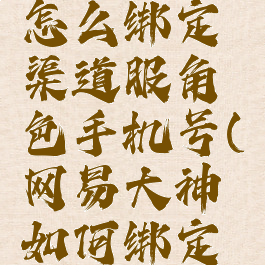 怎么绑定
渠道服角
色手机号(
网易大神
如何绑定